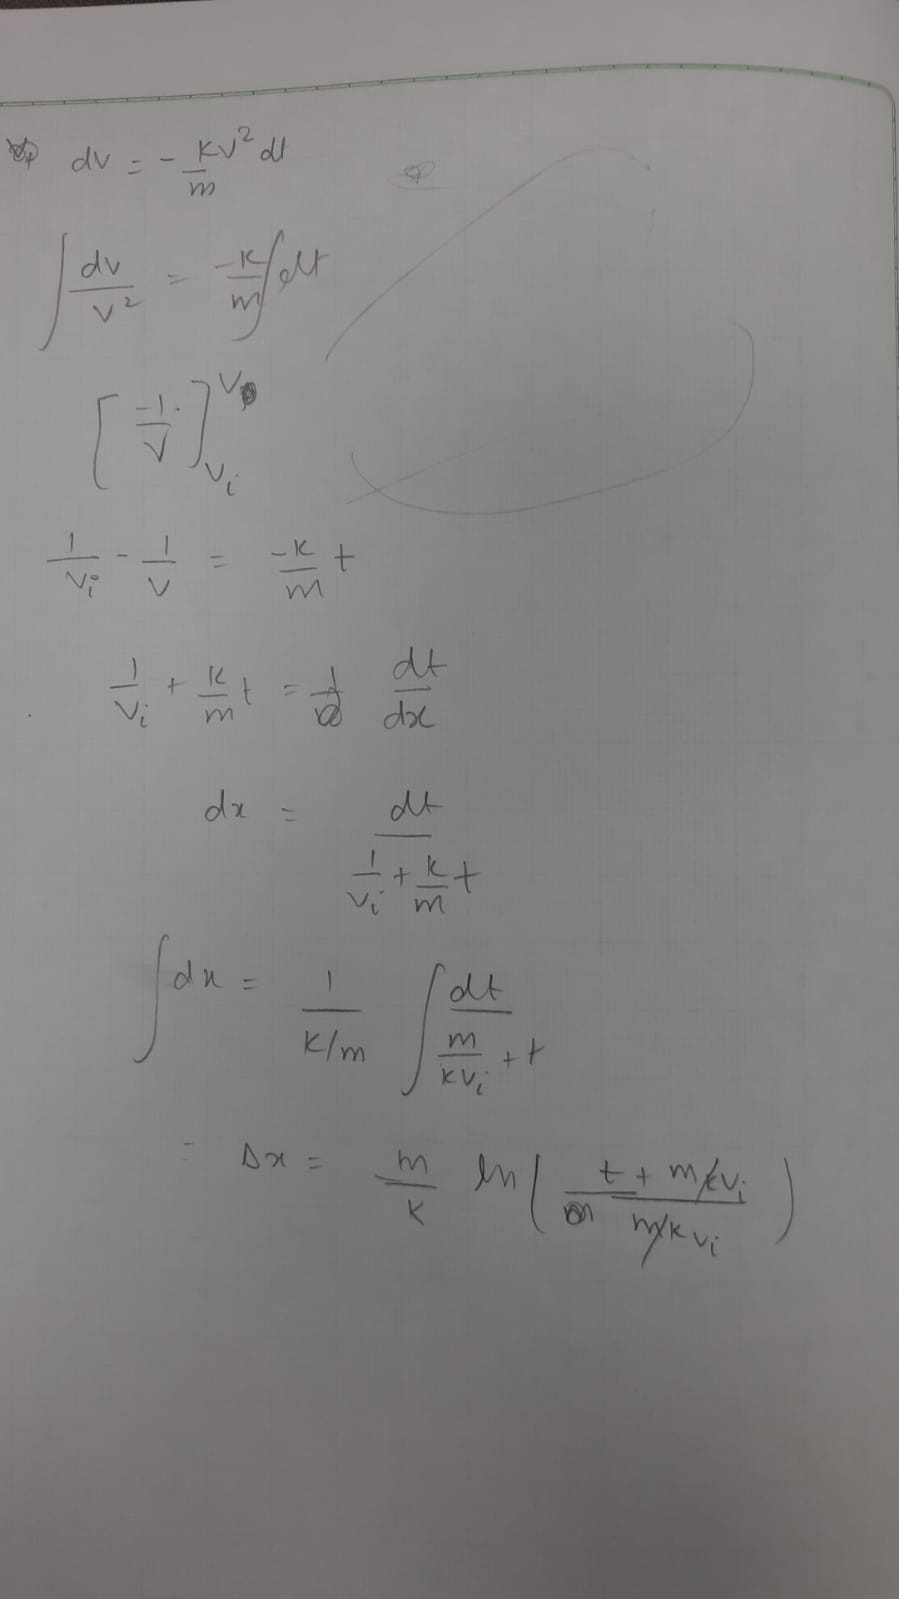 dv = - kv² dt / m
∫ dv / v² = -k / m ∫ dt
[ -1 / v ] v vᵢ
1 / vᵢ - 1 / v = -k / m t
1 / vᵢ + k / m t = dt / dx
dx = dt / (1 / vᵢ + k / m t)
∫ dx = 1 / (k/m) ∫ dt / (m / kvᵢ + t)
= Δx = m / k ln( (t + m/kvᵢ) / (m/kvᵢ) )